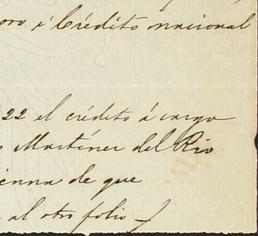 oro i Crédito nacional
22 el crédito á cargo
Martínez del Rio
de que
al otro folio